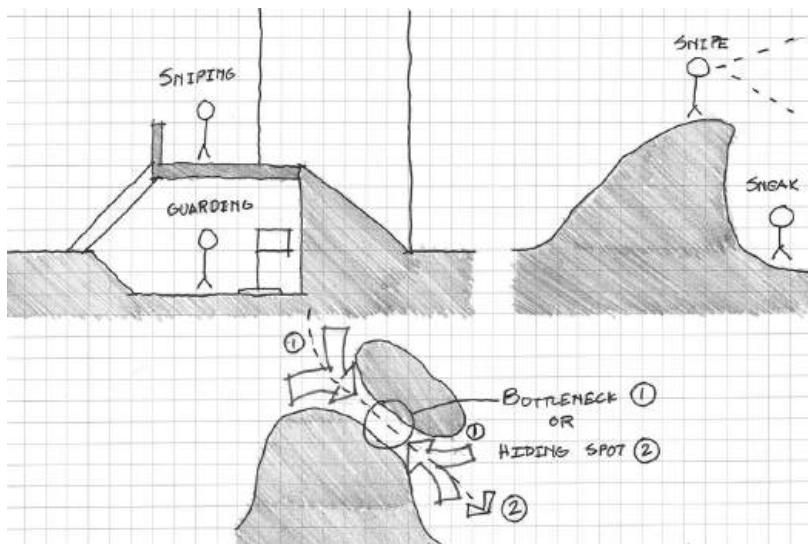 SNIPING
GUARDING
SNIPE
SNEAK
①
BOTTLENECK ①
OR
①
HIDING SPOT ②
②